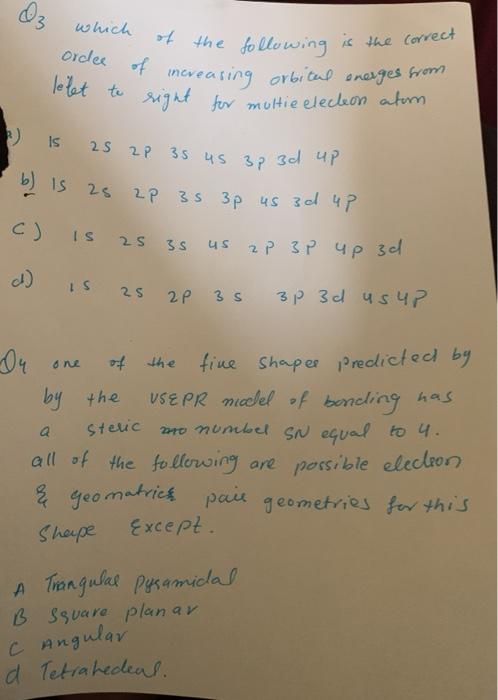 Q3 which of the following is the correct
order of increasing orbital energes from
lefet to right for multie electron atom
a) 1s 2s 2p 3s 4s 3p 3d 4p
b) 1s 2s 2p 3s 3p 4s 3d 4p
c) 1s 2s 3s 4s 2p 3p 4p 3d
d) 1s 2s 2p 3s 3p 3d 4s 4p
Q4 one of the five shapes predicted by
by the VSEPR model of bonding has
a steric number SN equal to 4.
all of the following are possible electron
& geomatrics pair geometries for this
Shape Except.
A Trangular pyramidal
B Square planar
C Angular
d Tetrahedral.